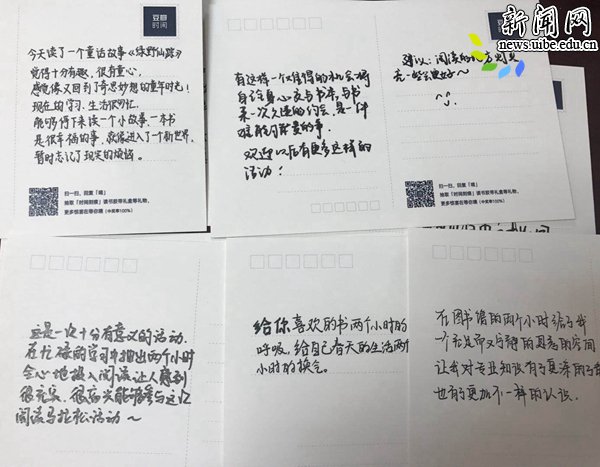 新闻网
news.uibe.edu.cn
豆瓣
时间
今天读了一个童话故事《绿野仙踪》
觉得十分有趣,很有童心,
感觉像又回到了奇思妙想的童年时光!
现在的学习、生活很匆忙
能够停下来读一个小故事、一本书
是很幸福的事,就像进入了一个新世界,
暂时忘记了现实的烦恼。
扫一扫,回复「嘀」
抽取「时间刻痕」读书胶带礼盒等礼物,
更多惊喜在等你噢(中奖率100%)
有这样一个难得的机会将
自己全身心交与书本,与书
来一次久违的约会,是一件
难能可贵的事.
欢迎以后有更多这样的
活动!
豆瓣
时间
建议:阅读的地方更
亮一些会更好~
扫一扫,回复「嘀」
抽取「时间刻痕」读书胶带礼盒等礼物,
更多惊喜在等你噢(中奖率100%)
这是一次十分有意义的活动.
在忙碌的学习中抽出两个小时
全心地投入阅读让人感到
很充实,很高兴能够参与这次
阅读马拉松活动~
给你喜欢的书两个小时的
呼吸,给自己春天的生活两
小时的换气。
在图书馆的两个小时给了我
一个充足而又宁静的思考的空间
让我对专业知识有了更深的
也有了更加不一样的认识.